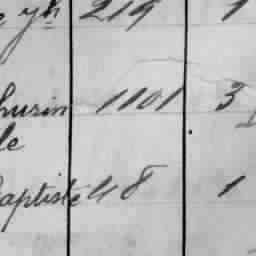 yn 219 1
hurin 1101 3
le
Baptiste 48 1